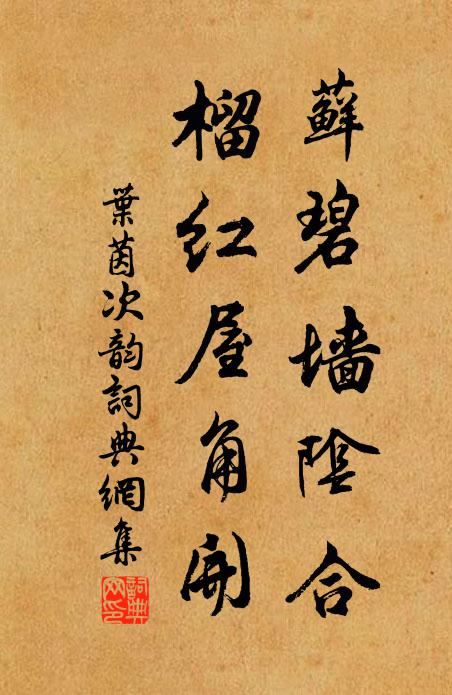 蘚碧墙陰合
榴红屋角開
葉茵次韵詞典網集
詞典網印